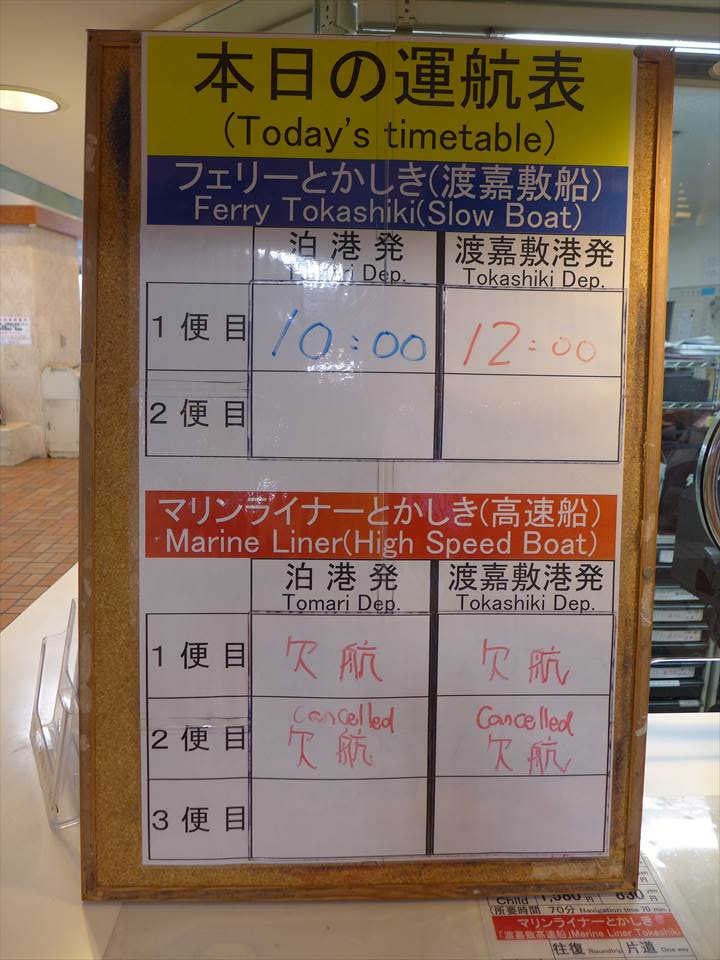 本日の運航表
(Today's timetable)
フェリーとかしき(渡嘉敷船)
Ferry Tokashiki(Slow Boat)
泊港発 渡嘉敷港発
Tomari Dep. Tokashiki Dep.
1便目 10:00 12:00
2便目
マリンライナーとかしき(高速船)
Marine Liner(High Speed Boat)
泊港発 渡嘉敷港発
Tomari Dep. Tokashiki Dep.
1便目 欠航 欠航
Cancelled Cancelled
2便目 欠航 欠航
3便目
Child 1,580円 830円 yen
(所要時間 70分 Navigation time 70 min)
マリンライナーとかしき
「渡嘉敷高速船」Marine Liner Tokashiki
往復 Roundtrip 片道 One way